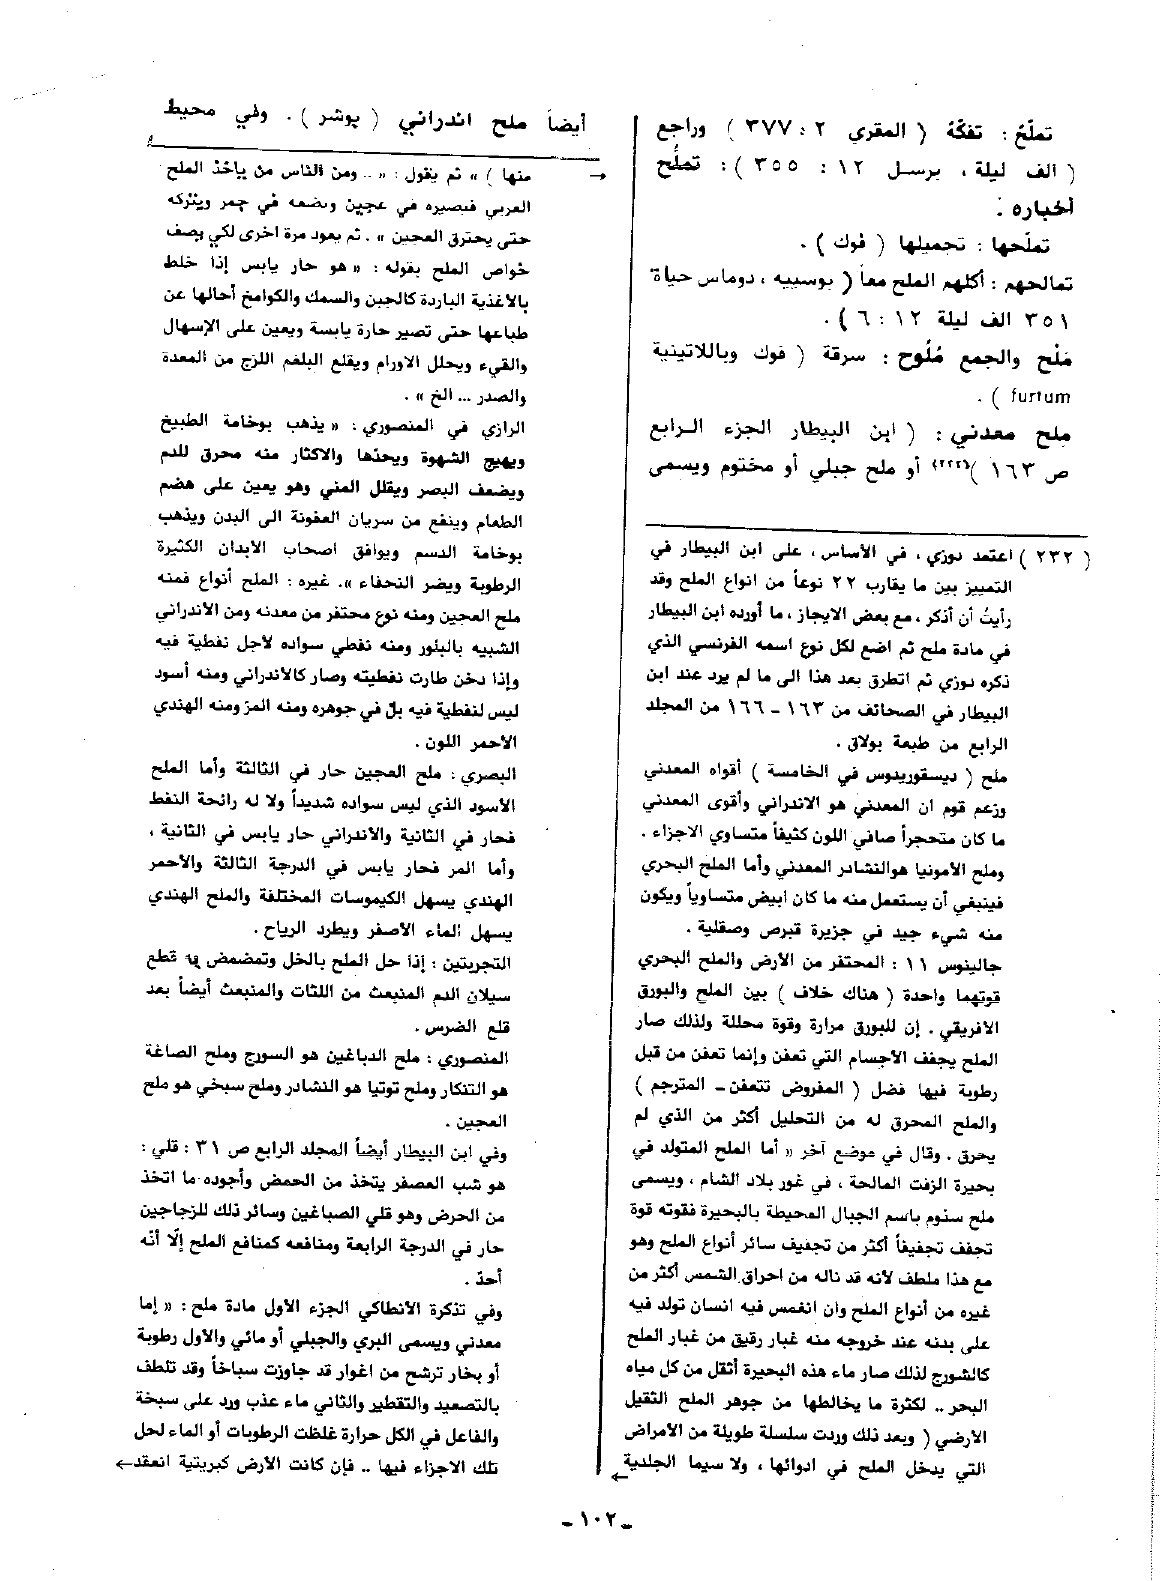 تملّحَ : تفكّهَ ( المقري ٢ : ٣٧٧ ) وراجع
( الف ليلة ، برسل ١٢ : ٣٥٥ ) : تملُّح
أخباره .
تملّحها : تجميلها ( فوك ) .
تمالحهم : أكلهم الملح معاً ( بوسييه ، دوماس حياة
٣٥١ الف ليلة ١٢ : ٦ ) .
مَلْح والجمع مُلُوح : سرقة ( فوك وباللاتينية
furtum ) .
ملح معدني : ( ابن البيطار الجزء الرابع
ص ١٦٣ )(٢٣٢) أو ملح جبلي أو مختوم ويسمى
( ٢٣٢ ) اعتمد دوزي ، في الأساس ، على ابن البيطار في
التمييز بين ما يقارب ٢٢ نوعاً من انواع الملح وقد
رأيتُ أن أذكر ، مع بعض الايجاز ، ما أورده ابن البيطار
في مادة ملح ثم اضع لكل نوع اسمه الفرنسي الذي
ذكره دوزي ثم اتطرق بعد هذا الى ما لم يرد عند ابن
البيطار في الصحائف من ١٦٣ - ١٦٦ من المجلد
الرابع من طبعة بولاق .
ملح ( ديسقوريدوس في الخامسة ) أقواه المعدني
وزعم قوم ان المعدني هو الاندراني وأقوى المعدني
ما كان متحجراً صافي اللون كثيفاً متساوي الاجزاء .
وملح الأمونيا هوالنشادر المعدني وأما الملح البحري
فينبغي أن يستعمل منه ما كان ابيض متساوياً ويكون
منه شيء جيد في جزيرة قبرص وصقلية .
جالينوس ١١ : المحتفر من الأرض والملح البحري
قوتهما واحدة ( هناك خلاف ) بين الملح والبورق
الافريقي . إن للبورق مرارة وقوة محللة ولذلك صار
الملح يجفف الأجسام التي تعفن وإنما تعفن من قبل
رطوبة فيها فضل ( المفروض تتعفن - المترجم )
والملح المحرق له من التحليل أكثر من الذي لم
يحرق . وقال في موضع آخر « أما الملح المتولد في
بحيرة الزفت المالحة ، في غور بلاد الشام ، ويسمى
ملح سنوم باسم الجبال المحيطة بالبحيرة فقوته قوة
تجفف تجفيفاً أكثر من تجفيف سائر أنواع الملح وهو
مع هذا ملطف لأنه قد ناله من احراق الشمس أكثر من
غيره من أنواع الملح وان انغمس فيه انسان تولد فيه
على بدنه عند خروجه منه غبار رقيق من غبار الملح
كالشورج لذلك صار ماء هذه البحيرة أثقل من كل مياه
البحر .. لكثرة ما يخالطها من جوهر الملح الثقيل
الأرضي ( وبعد ذلك وردت سلسلة طويلة من الامراض
التي يدخل الملح في ادوائها ، ولا سيما الجلدية ←
أيضاً ملح اندراني ( پوشر ) . وفي محيط
→ منها ) » ثم يقول : « .. ومن الناس من يأخذ الملح
العربي فيصيره في عجين ويضعه في جمر ويتركه
حتى يحترق العجين » . ثم يعود مرة اخرى لكي يصف
خواص الملح بقوله : « هو حار يابس إذا خلط
بالأغذية الباردة كالجبن والسمك والكوامخ أحالها عن
طباعها حتى تصير حارة يابسة ويعين على الإسهال
والقيء ويحلل الاورام ويقلع البلغم اللزج من المعدة
والصدر ... الخ » .
الرازي في المنصوري : « يذهب بوخامة الطبيخ
ويهيج الشهوة ويحذها والاكثار منه محرق للدم
ويضعف البصر ويقلل المني وهو يعين على هضم
الطعام وينفع من سريان العفونة الى البدن ويذهب
بوخامة الدسم ويوافق اصحاب الأبدان الكثيرة
الرطوبة ويضر النحفاء ». غيره : الملح أنواع فمنه
ملح العجين ومنه نوع محتفر من معدنه ومن الأندراني
الشبيه بالبلور ومنه نفطي سواده لأجل نفطية فيه
وإذا دخن طارت نفطيته وصار كالاندراني ومنه أسود
ليس لنفطية فيه بل في جوهره ومنه المز ومنه الهندي
الأحمر اللون .
البصري : ملح العجين حار في الثالثة وأما الملح
الأسود الذي ليس سواده شديداً ولا له رائحة النفط
فحار في الثانية والأندراني حار يابس في الثانية ،
وأما المر فحار يابس في الدرجة الثالثة والأحمر
الهندي يسهل الكيموسات المختلفة والملح الهندي
يسهل الماء الأصفر ويطرد الرياح .
التجربتين : إذا حل الملح بالخل وتمضمض به قطع
سيلان الدم المنبعث من اللثات والمنبعث أيضاً بعد
قلع الضرس .
المنصوري : ملح الدباغين هو السورج وملح الصاغة
هو التنكار وملح توتيا هو النشادر وملح سبخي هو ملح
العجين .
وفي ابن البيطار أيضاً المجلد الرابع ص ٣١ : قلي :
هو شب العصفر يتخذ من الحمض وأجوده ما اتخذ
من الحرض وهو قلي الصباغين وسائر ذلك للزجاجين
حار في الدرجة الرابعة ومنافعه كمنافع الملح إلّا أنّه
أحدّ .
وفي تذكرة الأنطاكي الجزء الأول مادة ملح : « إما
معدني ويسمى البري والجبلي أو مائي والأول رطوبة
أو بخار ترشح من اغوار قد جاوزت سباخاً وقد تلطف
بالتصعيد والتقطير والثاني ماء عذب ورد على سبخة
والفاعل في الكل حرارة غلظت الرطوبات أو الماء لحل
تلك الاجزاء فيها .. فإن كانت الأرض كبريتية انعقد ←
- ١٠٢ -